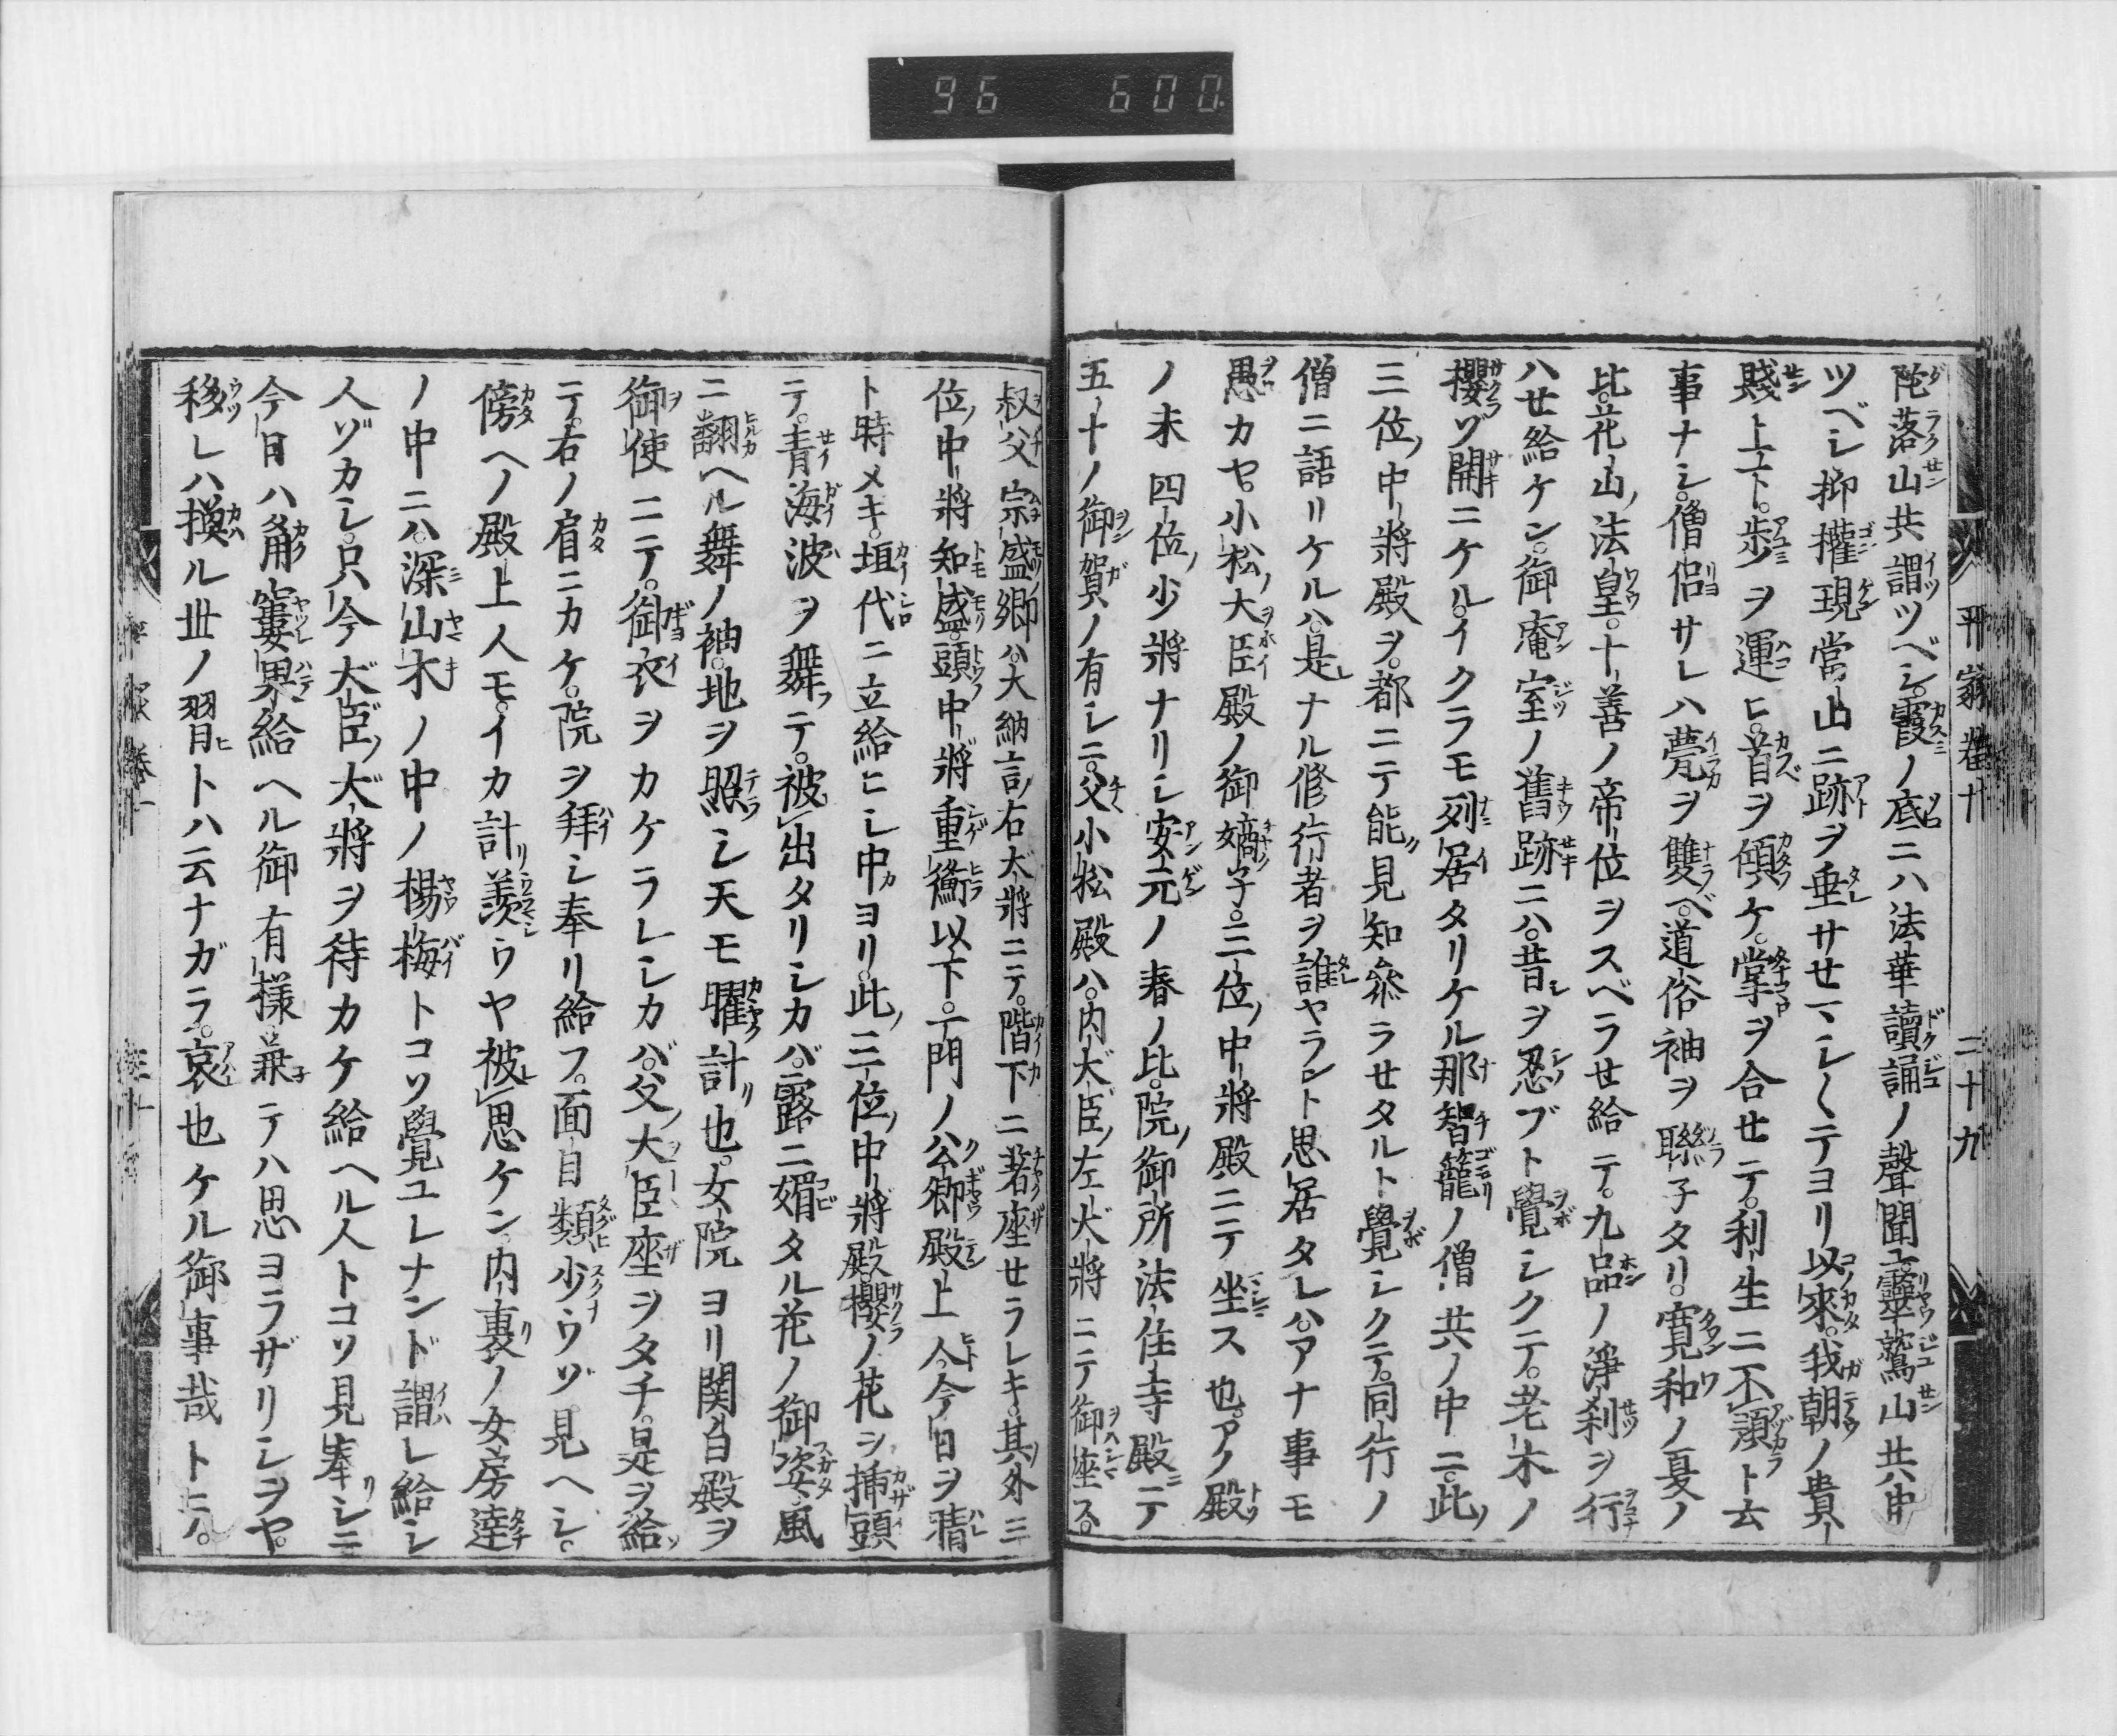 96 600
平家巻十 二十九
陀落山共謂ツベシ。霞ノ底ニハ法華讀誦ノ聲聞ユ。靈鷲山共申
ツベシ抑權現當山ニ跡ヲ垂サセマシ〱テヨリ以來。我朝ノ貴
賤上下。歩ヲ運ヒ。首ヲ傾ケ。掌ヲ合セテ。利生ニ不預ト云
事ナシ。僧侶サレハ甍ヲ雙ベ。道俗袖ヲ聯子タリ。寛和ノ夏ノ
比。花山ノ法皇。十善ノ帝位ヲスベラセ給テ。九品ノ淨刹ヲ行
ハセ給ケン。御庵室ノ舊跡ニハ。昔ヲ忍ブト覺シクテ。老木ノ
櫻ゾ開ニケル。イクラモ列居タリケル那智籠ノ僧共ノ中ニ。此
三位中將殿ヲ。都ニテ能見知參ラセタルト覺シクテ。同行ノ
僧ニ語リケルハ。是ナル修行者ヲ誰ヤラント思居タレハ。アナ事モ
愚カヤ。小松ノ大臣殿ノ御嫡子。三位中將殿ニテ坐ス也。アノ殿
ノ未四位少將ナリシ安元ノ春ノ比。院ノ御所法住寺殿ニテ
五十ノ御賀ノ有シニ。父小松殿ハ。内大臣ノ左大將ニテ御座ス。
叔父宗盛卿ハ。大納言ノ右大將ニテ。階下ニ著座セラレキ。其外三
位中將知盛。頭中將重衡以下。一門ノ公卿殿上人。今日ヲ晴
ト時メキ。垣代ニ立給ヒシ中ヨリ。此三位中將殿。櫻ノ花ヲ挿頭
テ。青海波ヲ舞テ。被出タリシカバ。露ニ媚タル花ノ御姿。風
ニ翻ヘル舞ノ袖。地ヲ照シ天モ曜計也。女院ヨリ関白殿ヲ
御使ニテ。御衣ヲカケラレシカバ。父ノ大臣座ヲタチ。是ヲ給
テ。右ノ肩ニカケ。院ヲ拜シ奉リ給フ。面目類少ウゾ。見ヘシ。
傍ヘノ殿上人モ。イカ計羨ウヤ被思ケン。内裏ノ女房達
ノ中ニハ。深山木ノ中ノ楊梅トコソ覺ユレナンド謂レ給シ
人ゾカシ。只今大臣ノ大將ヲ待カケ給ヘル人トコソ見奉シニ
今日ハ角窶果給ヘル御有樣。兼テハ思ヨラザリシヲヤ。
移レハ換ル世ノ習トハ云ナガラ。哀也ケル御事哉トテ。